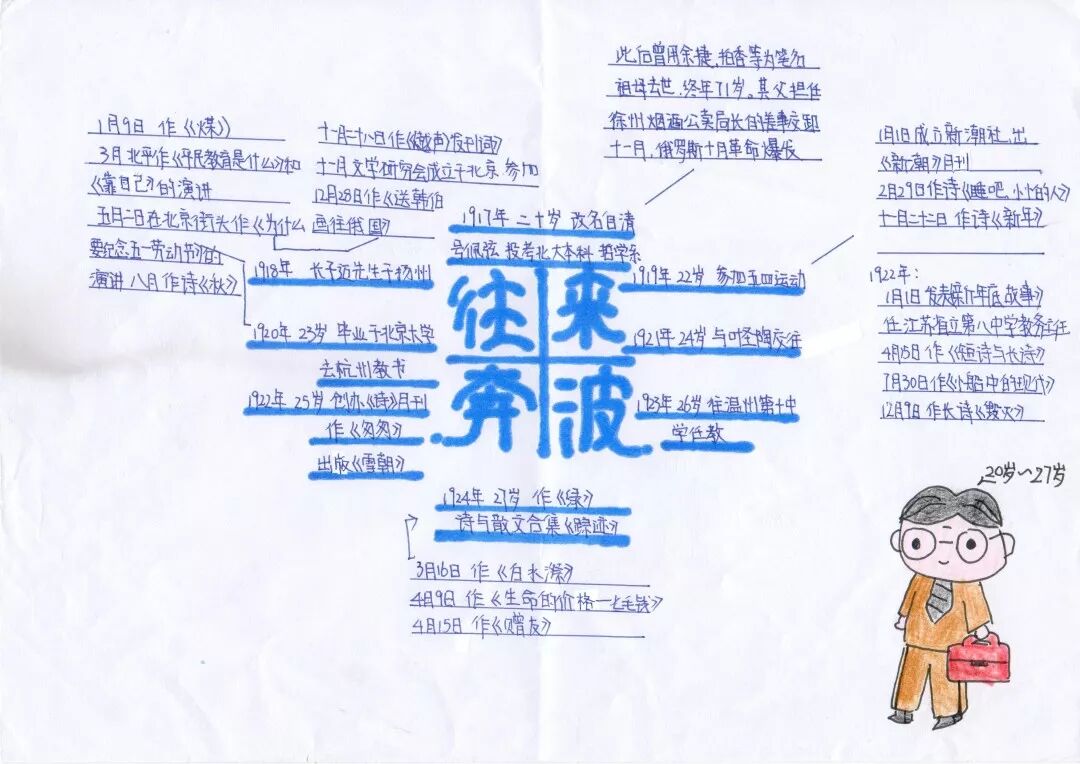 此后曾用余捷、柏香等为笔名
祖母去世,终年71岁。其父担任
徐州烟酒公卖局长的差事交卸
十一月,俄罗斯十月革命爆发
1月9日 作《煤》
3月 北平作《平民教育是什么》和
《靠自己》的演讲
五月一日在北京街头作《为什么
要纪念五一劳动节》的
演讲 八月 作诗《秋》
十一月二十八日作《越声》发刊词》
十一月 文学研究会成立于北京 参加
12月28日作《送韩伯
画往俄国》
1917年 二十岁 改名自清
号佩弦 投考北大本科 哲学系
1918年 长子迈先生于扬州
1920年 23岁 毕业于北京大学
去杭州教书
1922年 25岁 创办《诗》月刊
作《匆匆》
出版《雪朝》
往来
奔波
1919年 22岁 参加五四运动
1921年 24岁 与叶圣陶交往
1923年 26岁 往温州第十中
学任教
1月1日成立新潮社,出
《新潮》月刊
2月29日作诗《睡吧,小小的人》
十一月二十二日 作诗《新年》
1922年:
1月1日 发表 年底故事》
任江苏省立第八中学教务主任
4月5日 作《短诗与长诗》
7月30日作《小船中的现代》
12月9日 作长诗《毁灭》
1924年 27岁 作《绿》
诗与散文合集《踪迹》
3月16日 作《白水漈》
4月9日 作《生命的价格一七毛钱》
4月15日 作《赠友》
20岁~27岁